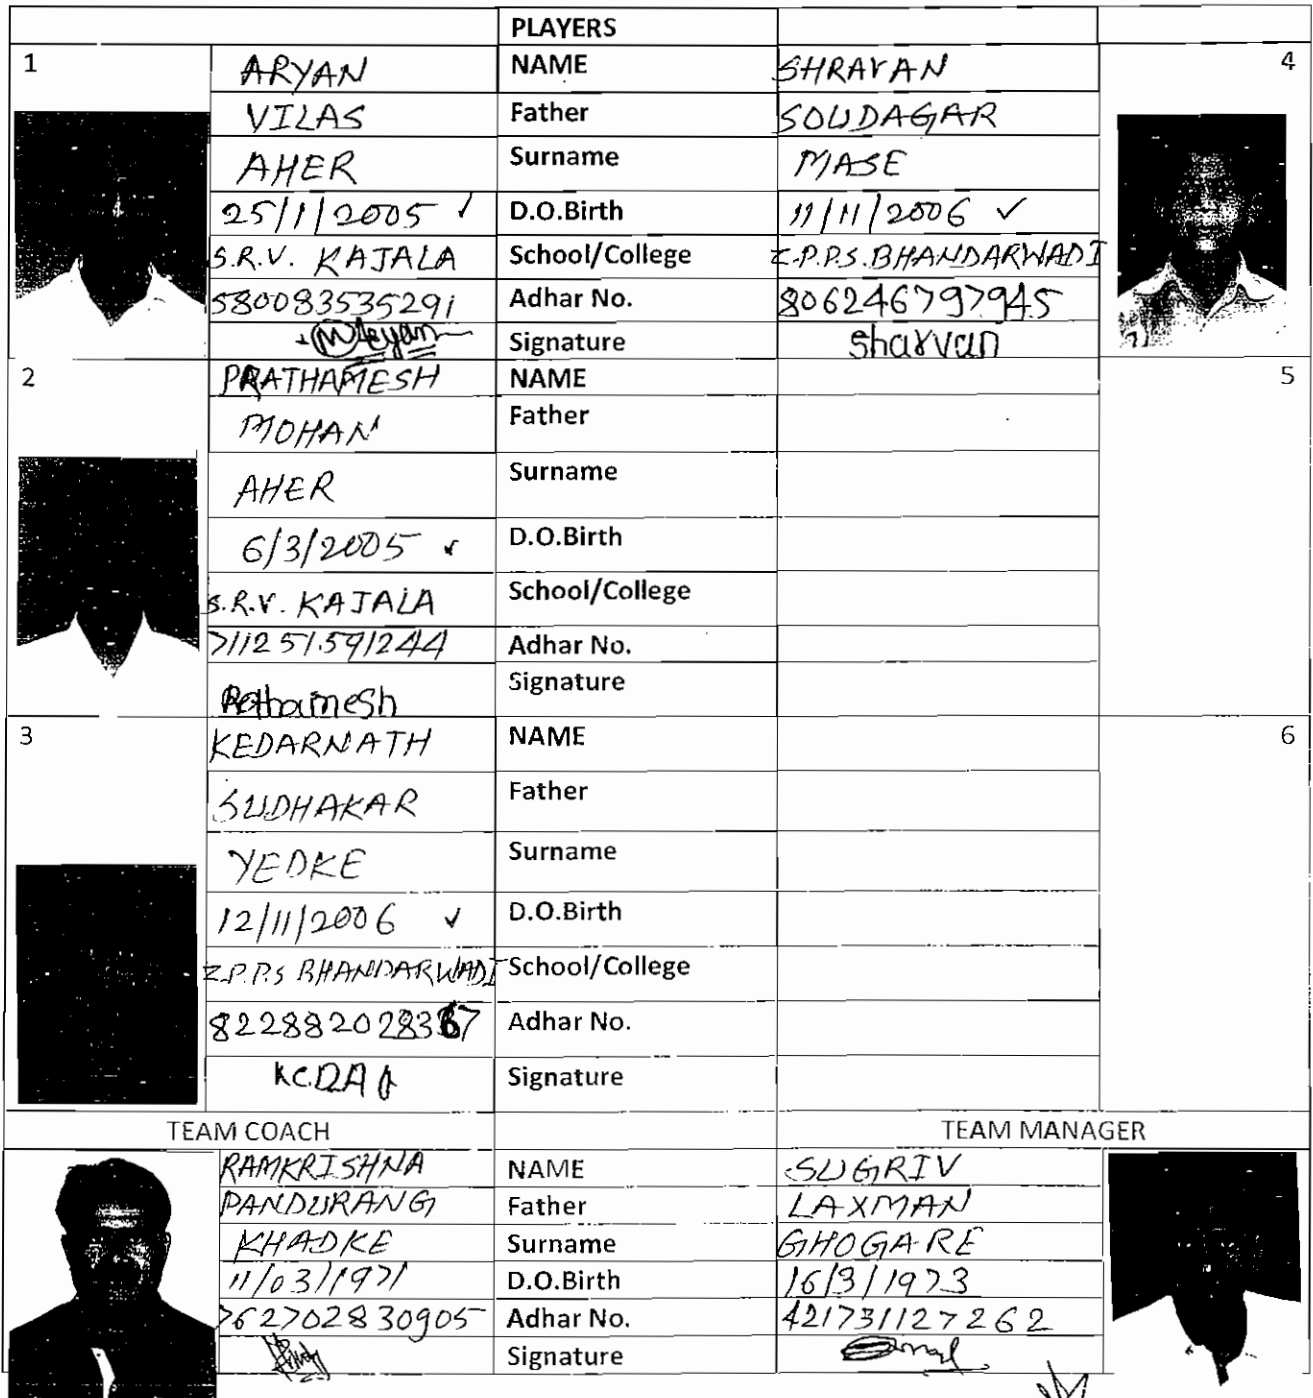 PLAYERS
1 ARYAN NAME SHRAVAN 4
VILAS Father SOUDAGAR
AHER Surname MASE
25/1/2005 ✓ D.O.Birth 11/11/2006 ✓
S.R.V. KAJALA School/College Z.P.P.S. BHANDARWADI
580083535291 Adhar No. 806246797945
Aryan Signature Sharvan
2 PRATHAMESH NAME 5
MOHAN Father
AHER Surname
6/3/2005 ✓ D.O.Birth
S.R.V. KAJALA School/College
711251591244 Adhar No.
Prathamesh Signature
3 KEDARNATH NAME 6
SUDHAKAR Father
YEDKE Surname
12/11/2006 ✓ D.O.Birth
Z.P.P.S BHANDARWADI School/College
Adhar No.
Signature
TEAM COACH TEAM MANAGER
RAMKRISHNA NAME SUGRIV
PANDURANG Father LAXMAN
KHADKE Surname GHOGARE
11/03/1971 D.O.Birth 16/3/1973
762702830905 Adhar No. 421731127262
Signature